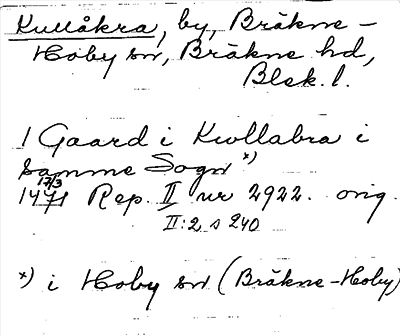 Kullåkra, by, Bräkne-
Hoby sn, Bräkne hd,
Blek. l.
1 Gaard i Kullabra i
samme Sogn x)
17/3
1471 Rep. II nr 2922. orig.
II:2 s 240
x) i Hoby sn (Bräkne-Hoby)